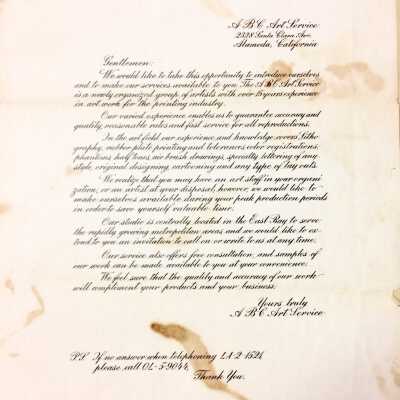 A B C Art Service
2338 Santa Clara Ave.
Alameda, California
Gentlemen:
We would like to take this opportunity to introduce ourselves
and to make our services available to you. The A B C Art Service
is a newly organized group of artists with over 15 years experience
in art work for the printing industry.
Our varied experience enables us to guarantee accuracy and
quality, reasonable rates and fast service for all reproductions.
In the art field our experience and knowledge covers Litho-
graphy, rubber plate printing and tolerance, color registrations,
phantoms, half tones, air brush drawings, specialty lettering of any
style, original designing, cartooning and any type of lay outs.
We realize that you may have an art staff in your organi-
zation, or an artist at your disposal, however, we would like to
make ourselves available during your peak production periods
in order to save yourself valuable time.
Our studio is centrally located in the East Bay to serve
the rapidly growing metropolitan areas and we would like to ex-
tend to you an invitation to call on or write to us at any time.
Our service also offers free consultation, and samples of
our work can be made available to you at your convenience.
We feel sure that the quality and accuracy of our work
will complement your products and your business.
Yours truly
A B C Art Service
P.S. If no answer when telephoning LA-2 1524
please call OL-5-9044,
Thank You.